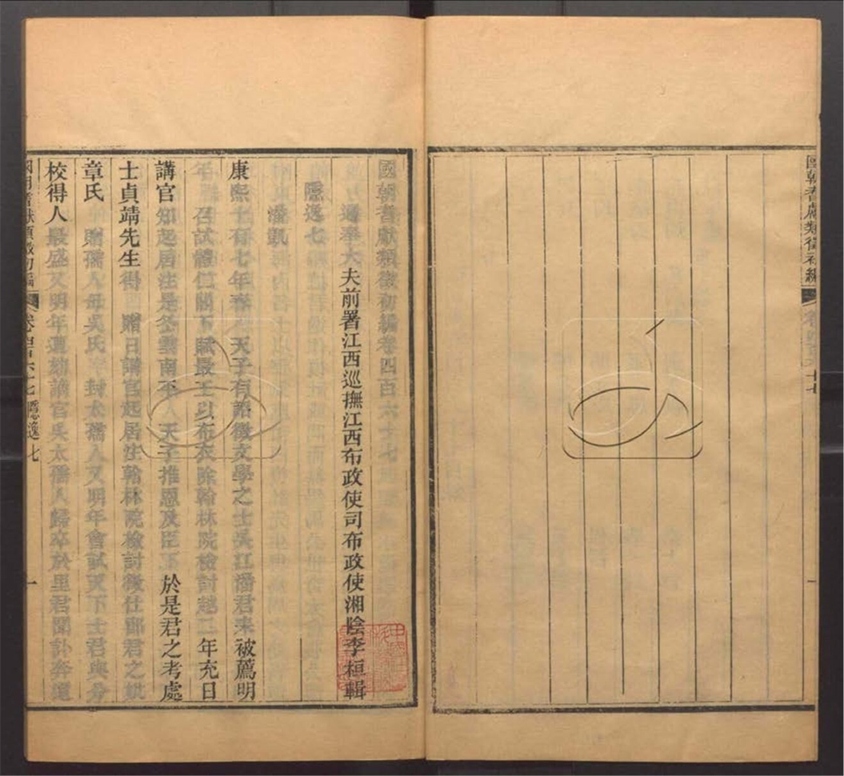 國朝耆獻類徵初編
國朝耆獻類徵初編卷四百六十七
通奉大夫前署江西巡撫江西布政使司布政使湘陰李桓輯
隱逸七
潘凱
康熙十有七年春 天子有詔徵文學之士吳江潘君耒被薦明
年 召試體仁閣下賦最工以布衣除翰林院檢討越二年充日
講官知起居注是冬雲南平 天子推恩及臣下於是君之考處
士貞靖先生得 贈日講官起居注翰林院檢討徵仕郎君之妣
章氏 贈孺人母吳氏 封太孺人又明年會試天下士君與分
校得人最盛又明年遭劾謫官吳太孺人歸卒於里君聞訃奔還
國朝耆獻類徵初編 卷四百六十七 隱逸七 一